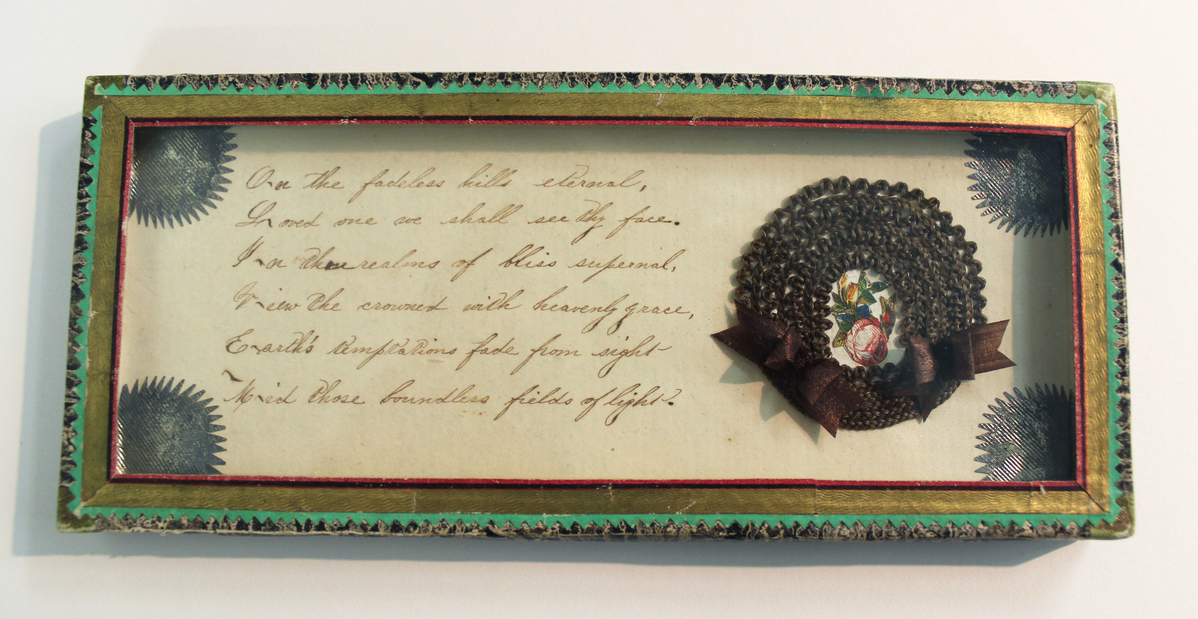 On the fadeless hills eternal,
Loved one we shall see thy face.
In realms of bliss supernal,
View the crowned with heavenly grace,
Earth's temptations fade from sight
Mid those boundless fields of light.